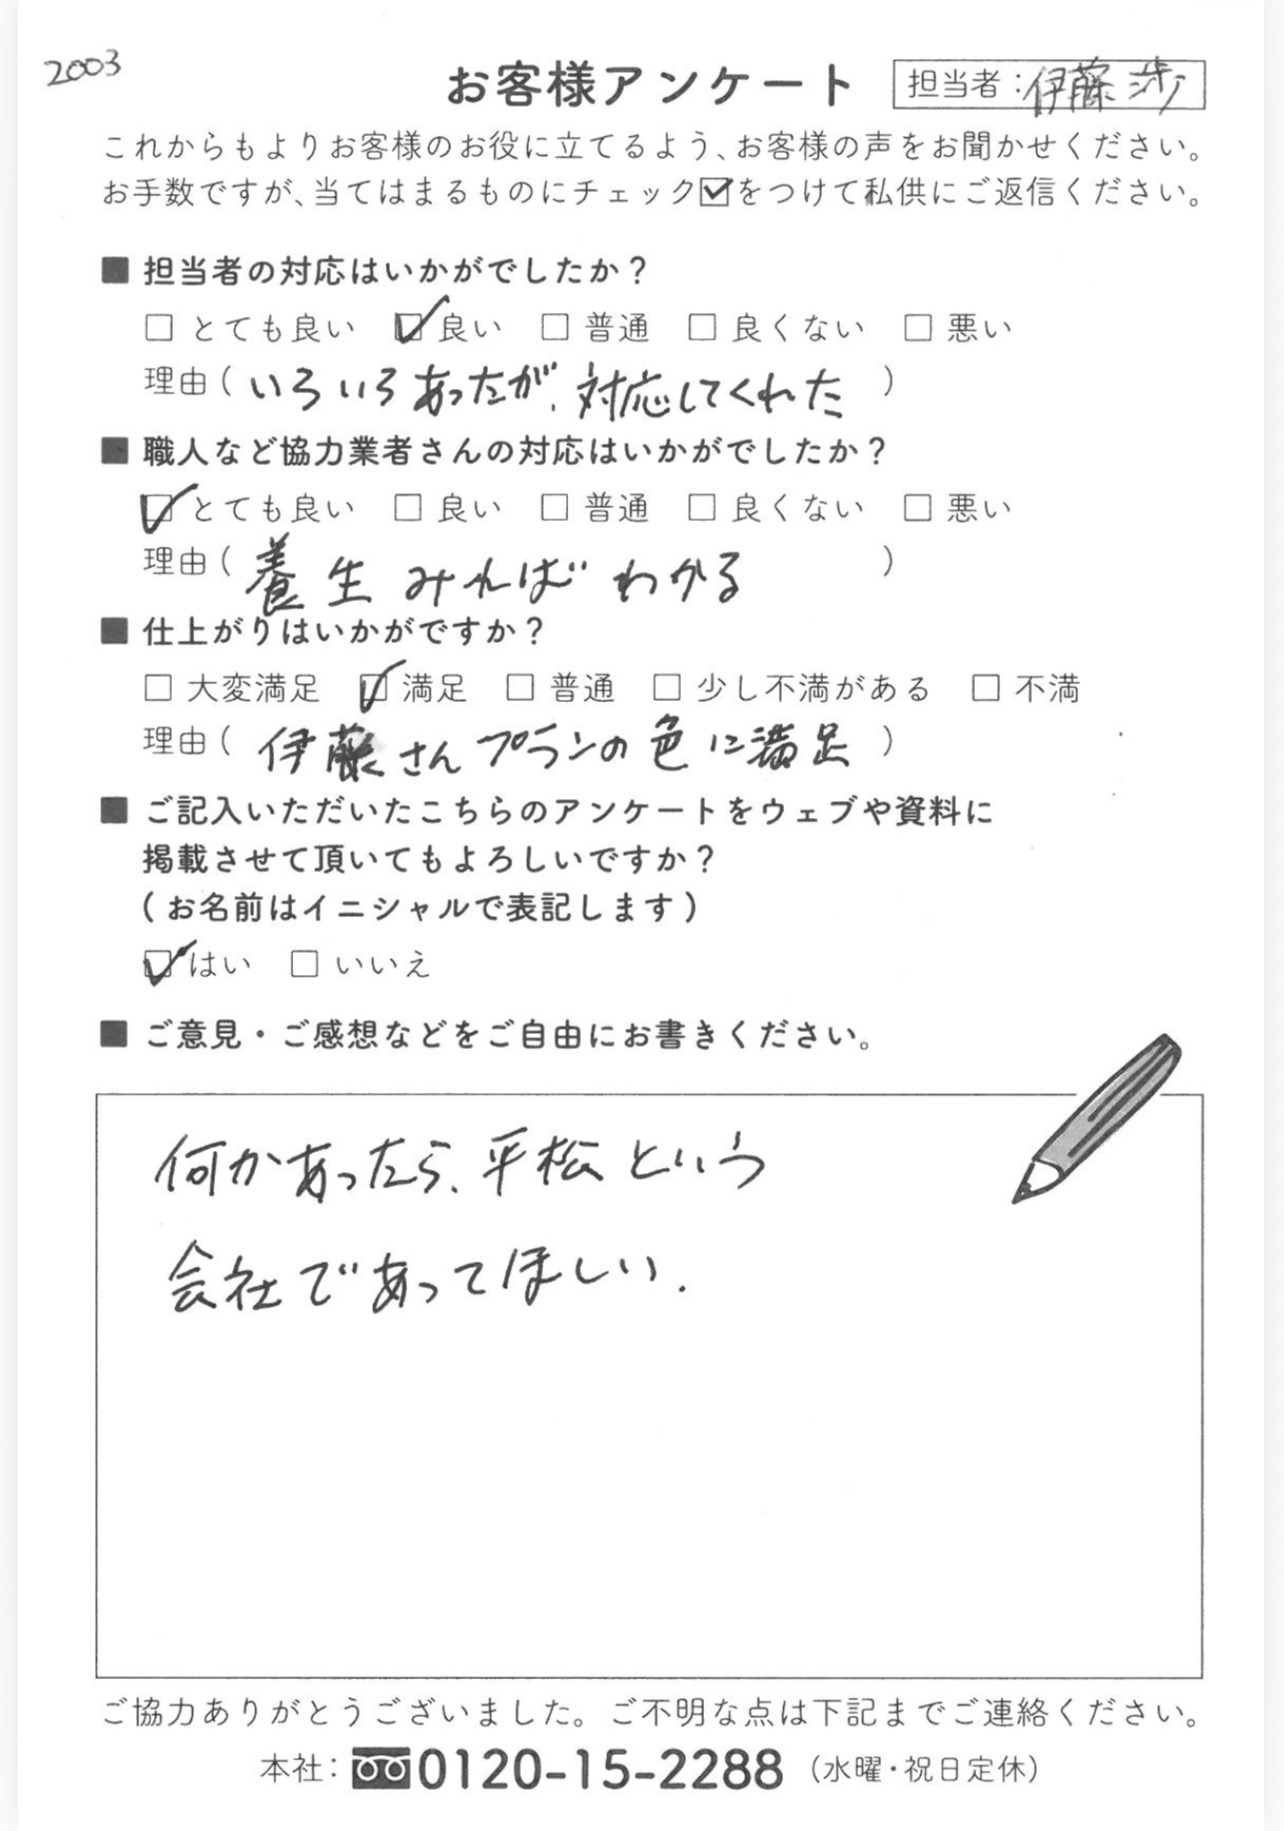 2003
お客様アンケート 担当者：伊藤 渉
これからもよりお客様のお役に立てるよう、お客様の声をお聞かせください。
お手数ですが、当てはまるものにチェック☑をつけて私供にご返信ください。
■ 担当者の対応はいかがでしたか？
□ とても良い ☑ 良い □ 普通 □ 良くない □ 悪い
理由（いろいろあったが、対応してくれた）
■ 職人など協力業者さんの対応はいかがでしたか？
☑ とても良い □ 良い □ 普通 □ 良くない □ 悪い
理由（養生みればわかる）
■ 仕上がりはいかがですか？
□ 大変満足 ☑ 満足 □ 普通 □ 少し不満がある □ 不満
理由（伊藤さんプランの色に満足）
■ ご記入いただいたこちらのアンケートをウェブや資料に
掲載させて頂いてもよろしいですか？
（お名前はイニシャルで表記します）
☑ はい □ いいえ
■ ご意見・ご感想などをご自由にお書きください。
何かあったら、平松という
会社であってほしい.
ご協力ありがとうございました。ご不明な点は下記までご連絡ください。
本社：0120-15-2288（水曜・祝日定休）